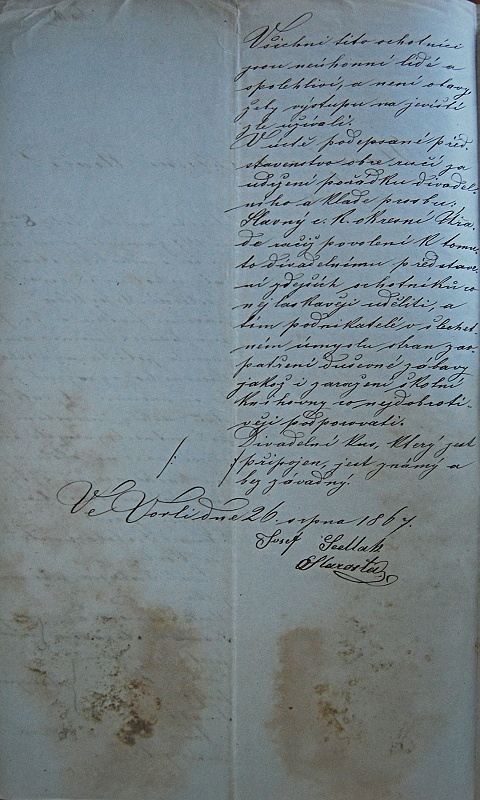 Všichni tito ochotníci
jsou neúhonní lidé a
spolehliví, a není obavy
žeby výstupu na jevišti
zle užívali.
V úctě podepsané před-
stavenstvo obce ručí za
udržení pořádku divadel-
ního a klade prosbu:
Slavný c. k. okresní Úřa-
de račiž povolení k tomu-
to divadelnímu představe-
ní zdejších ochotníků co
nejlaskavěji uděliti, a
tím podnikatele v šlechet-
ném úmyslu stran zao-
patření duševné zábavy
jakož i zaražení školní
knihovny co nejdobroti-
věji podporovati.
Divadelní kus, který jest
/. připojen, jest známý a
bez závadný.
Ve Vorli dne 26. srpna 1867.
Josef Sedlak
Starosta